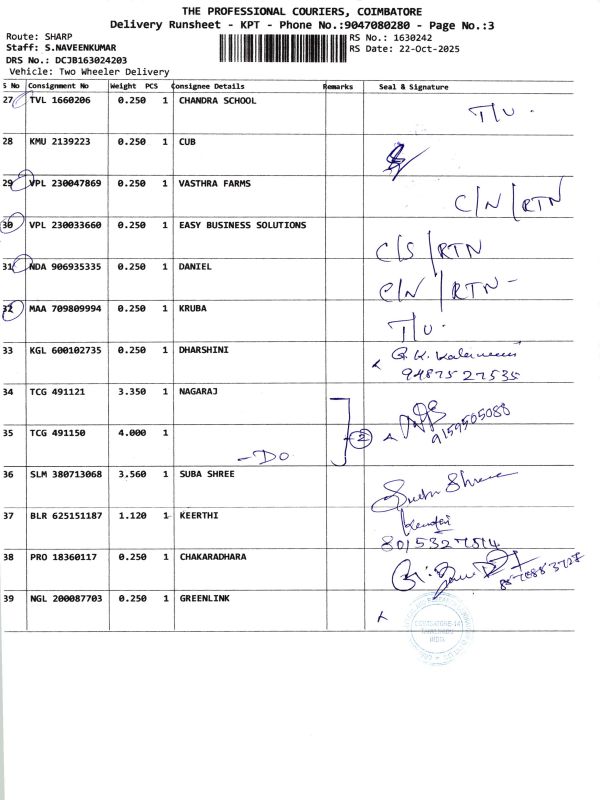 THE PROFESSIONAL COURIERS, COIMBATORE
Delivery Runsheet - KPT - Phone No.:9047080280 - Page No.:3
Route: SHARP
RS No.: 1630242
Staff: S.NAVEENKUMAR
RS Date: 22-Oct-2025
DRS No.: DCJB163024203
Vehicle: Two Wheeler Delivery
S No Consignment No Weight PCS Consignee Details Remarks Seal & Signature
27 TVL 1660206 0.250 1 CHANDRA SCHOOL
28 KMU 2139223 0.250 1 CUB
29 VPL 230047869 0.250 1 VASTHRA FARMS C/N/RTN
30 VPL 230033660 0.250 1 EASY BUSINESS SOLUTIONS C/S/RTN
31 NDA 906935335 0.250 1 DANIEL C/N/RTN-
32 MAA 709809994 0.250 1 KRUBA
33 KGL 600102735 0.250 1 DHARSHINI
9487527535
34 TCG 491121 3.350 1 NAGARAJ
35 TCG 491150 4.000 1 -Do 2 9159505088
36 SLM 380713068 3.560 1 SUBA SHREE
37 BLR 625151187 1.120 1 KEERTHI
38 PRO 18360117 0.250 1 CHAKARADHARA
39 NGL 200087703 0.250 1 GREENLINK